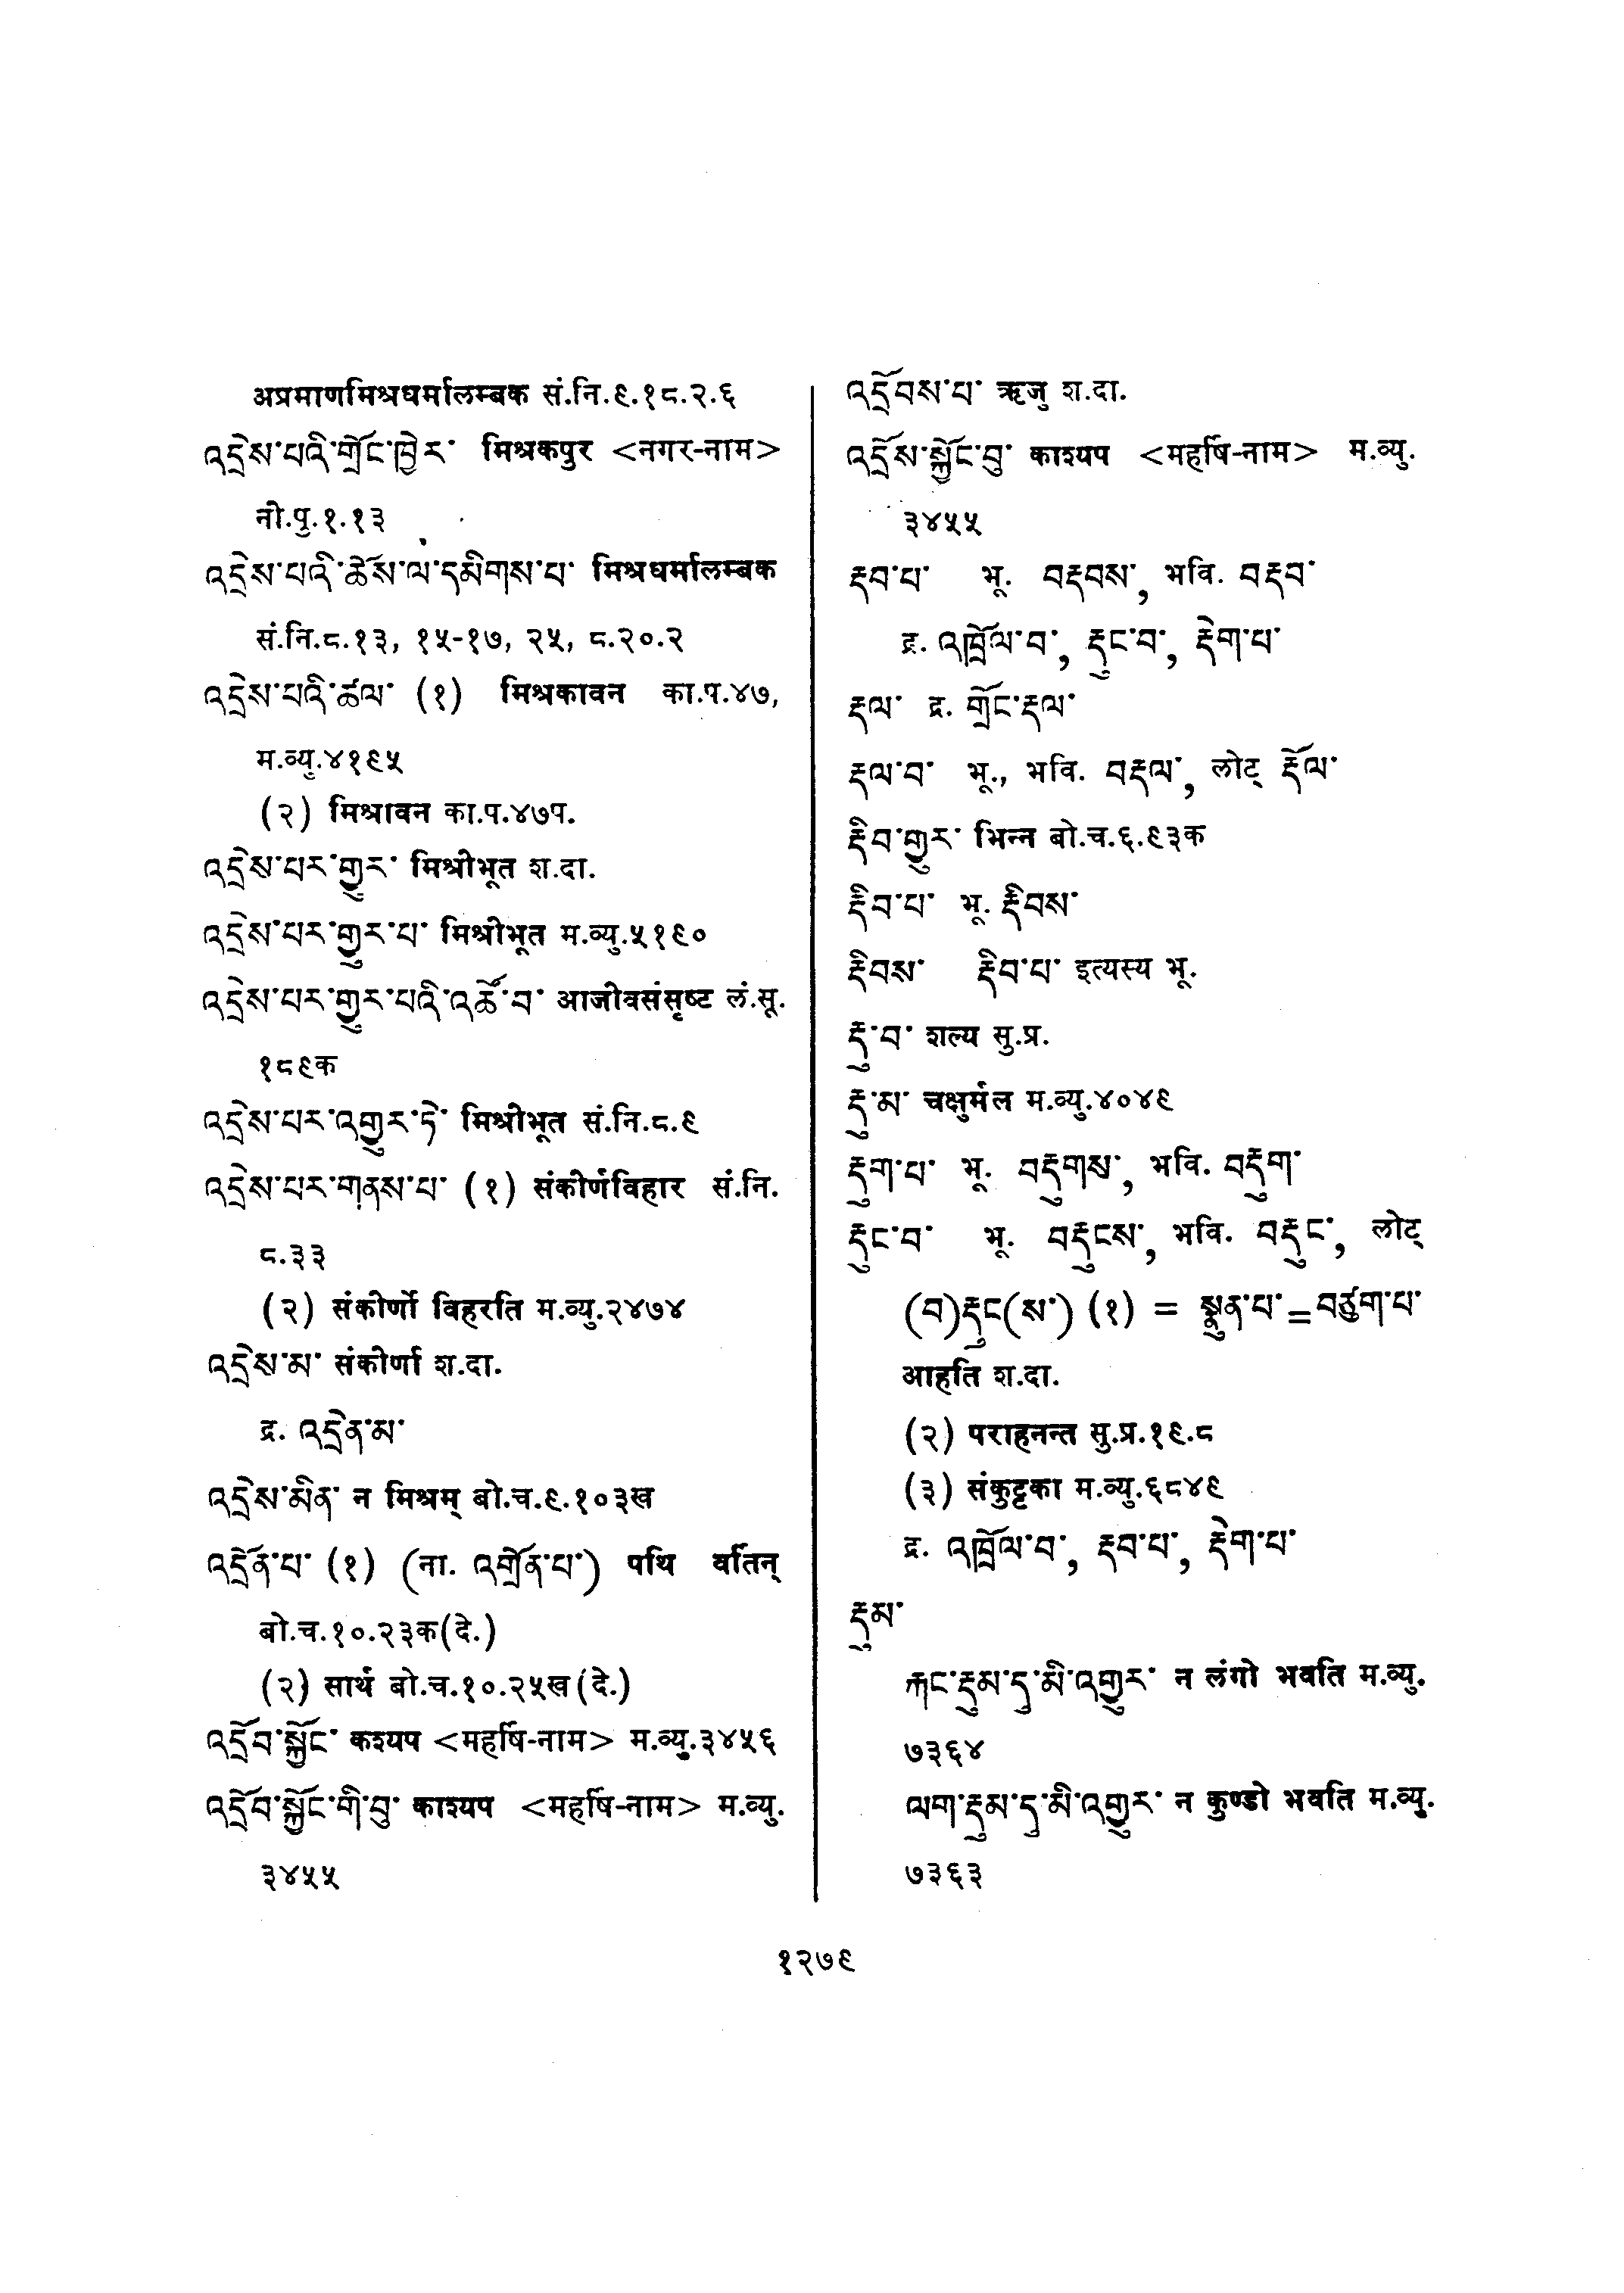 अप्रमाणमिश्रधर्मालम्बक सं.नि.९.१८.२.६
འདྲེས་པའི་གྲོང་ཁྱེར་ मिश्रकपुर <नगर-नाम>
नो.पु.१.१३
འདྲེས་པའི་ཆོས་ལ་དམིགས་པ་ मिश्रधर्मालम्बक
सं.नि.८.१३, १५-१७, २५, ८.२०.२
འདྲེས་པའི་ཚལ་ (१) मिश्रकावन का.प.४७,
म.व्यु.४१९५
(२) मिश्रावन का.प.४७प.
འདྲེས་པར་གྱུར་ मिश्रीभूत श.दा.
འདྲེས་པར་གྱུར་པ་ मिश्रीभूत म.व्यु.५१९०
འདྲེས་པར་གྱུར་པའི་འཚོ་བ་ आजीवसंसृष्ट लं.सू.
१८९क
འདྲེས་པར་འགྱུར་ཏེ་ मिश्रीभूत सं.नि.८.९
འདྲེས་པར་གནས་པ་ (१) संकीर्णविहार सं.नि.
८.३३
(२) संकीर्णो विहरति म.व्यु.२४७४
འདྲེས་མ་ संकीर्णा श.दा.
द्र. འདྲེན་མ་
འདྲེས་མིན་ न मिश्रम् बो.च.९.१०३ख
འདྲོན་པ་ (१) (ना. འགྲོན་པ་) पथि वर्तिन्
बो.च.१०.२३क(दे.)
(२) सार्थ बो.च.१०.२५ख(दे.)
འདྲོབ་སྐྱོང་ कश्यप <महर्षि-नाम> म.व्यु.३४५६
འདྲོབ་སྐྱོང་གི་བུ་ काश्यप <महर्षि-नाम> म.व्यु.
३४५५
འདྲོབས་པ་ ऋजु श.दा.
འདྲོས་སྐྱོང་བུ་ काश्यप <महर्षि-नाम> म.व्यु.
३४५५
རྡབ་པ་ भू. བརྡབས་, भवि. བརྡབ་
द्र. འཁྲོལ་བ་, རྡུང་བ་, རྡེག་པ་
རྡལ་ द्र. གྲོང་རྡལ་
རྡལ་བ་ भू., भवि. བརྡལ་, लोट् རྡོལ་
རྡིབ་གྱུར་ भिन्न बो.च.६.९३क
རྡིབ་པ་ भू. རྡིབས་
རྡིབས་ རྡིབ་པ་ इत्यस्य भू.
རྡུ་བ་ शल्य सु.प्र.
རྡུ་མ་ चक्षुर्मल म.व्यु.४०४९
རྡུག་པ་ भू. བརྡུགས་, भवि. བརྡུག་
རྡུང་བ་ भू. བརྡུངས་, भवि. བརྡུང་, लोट्
(བ)རྡུང(ས་) (१) = སྣུན་པ་ = བཙུག་པ་
आहति श.दा.
(२) पराहनन्त सु.प्र.१९.८
(३) संकुट्टका म.व्यु.६८४९
द्र. འཁྲོལ་བ་, རྡབ་པ་, རྡེག་པ་
རྡུམ་
རྐང་རྡུམ་དུ་མི་འགྱུར་ न लंगो भवति म.व्यु.
७३६४
ལག་རྡུམ་དུ་མི་འགྱུར་ न कुण्डो भवति म.व्यु.
७३६३
१२७९